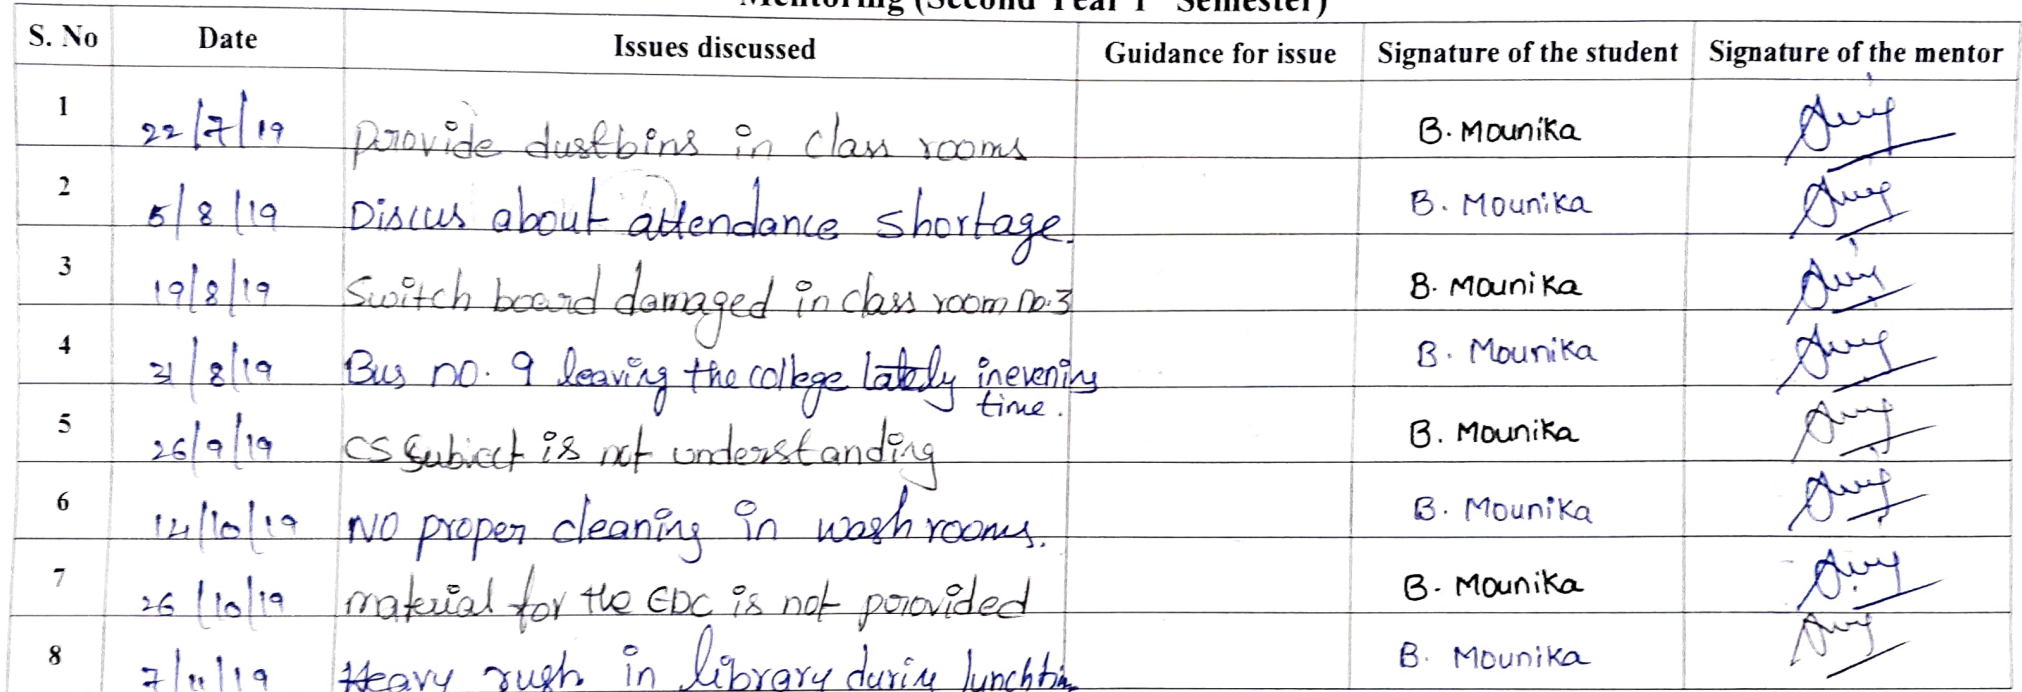 Mentoring (Second Year 1st Semester)
S. No Date Issues discussed Guidance for issue Signature of the student Signature of the mentor
1 22/7/19 provide dustbins in class rooms B. Mounika
2 5/8/19 Discus about attendance shortage. B. Mounika
3 19/8/19 Switch board damaged in class room no.3 B. Mounika
4 31/8/19 Bus no. 9 leaving the college lately in evening B. Mounika
time.
5 26/9/19 CS Subject is not understanding B. Mounika
6 14/10/19 NO proper cleaning in wash rooms. B. Mounika
7 26/10/19 material for the EDC is not provided B. Mounika
8 7/11/19 Heavy rush in library during lunch B. Mounika